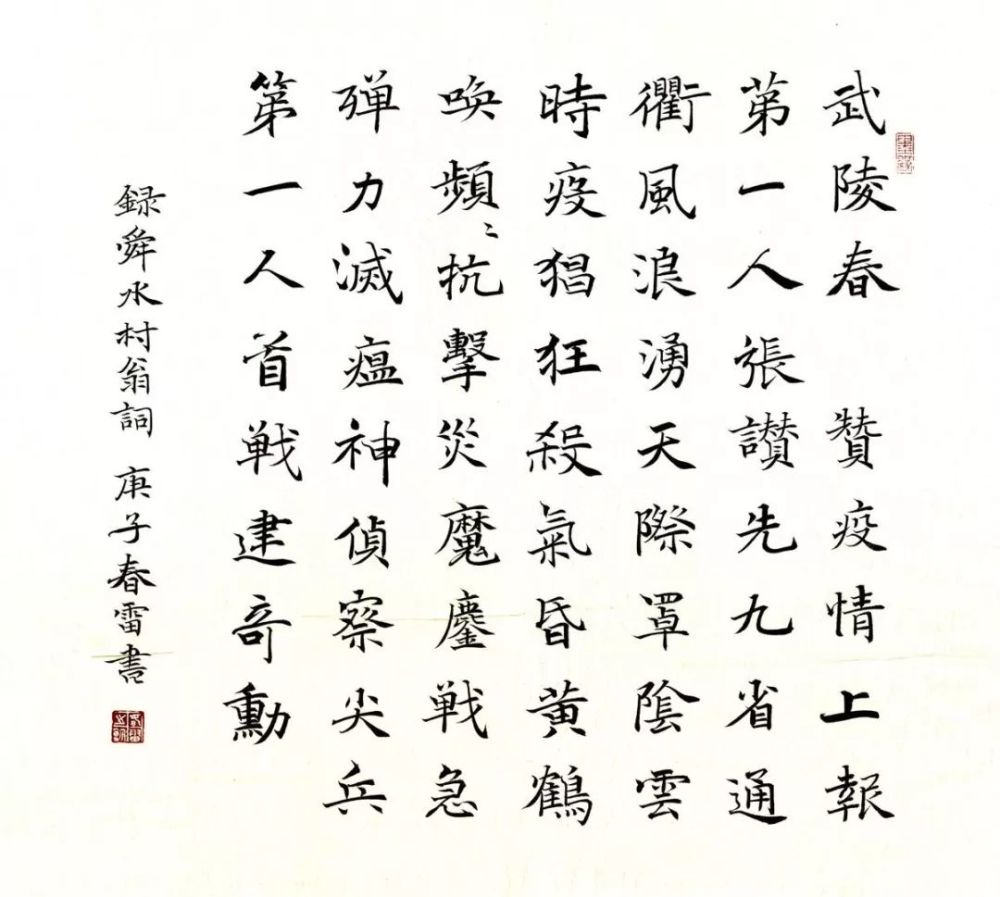 武陵春 贊疫情上報
第一人張讃先九省通
衢風浪湧天際罩陰雲
時疫猖狂殺氣昏黃鶴
喚頻〻抗擊災魔鏖戦急
殫力滅瘟神偵察尖兵
第一人首戦建奇勳
録舜水村翁詞 庚子春雷書